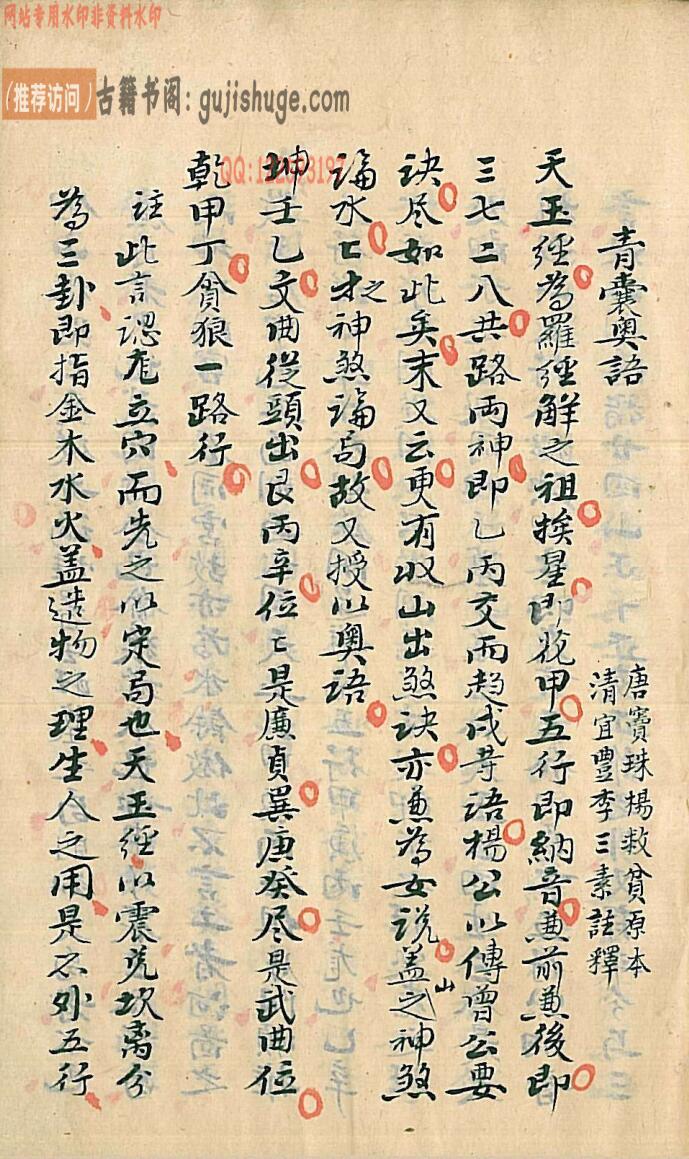 网站专用水印非资料水印
(推荐访问)古籍书阁:gujishuge.com
青囊奧語
唐竇珠楊救貧原本
清宜豐李三素註釋
天玉經為羅經解之祖挨星即花甲五行即納音兼前兼後即
三七二八共路両神即乙丙交而趋戌等语楊公以傳曾公要
诀尽如此矣末又云更有收山出煞诀亦兼為女说盖山之神煞
論水匕才之神煞論局故又授以奥语
坤壬乙文曲從頭出艮丙辛位匕是廉貞巽庚癸尽是武曲位
乾甲丁貪狼一路行
註此言認龙立穴而先之以定局也天玉經以震兑坎离分
為三卦即指金木水火盖造物之理生人之用是不外五行